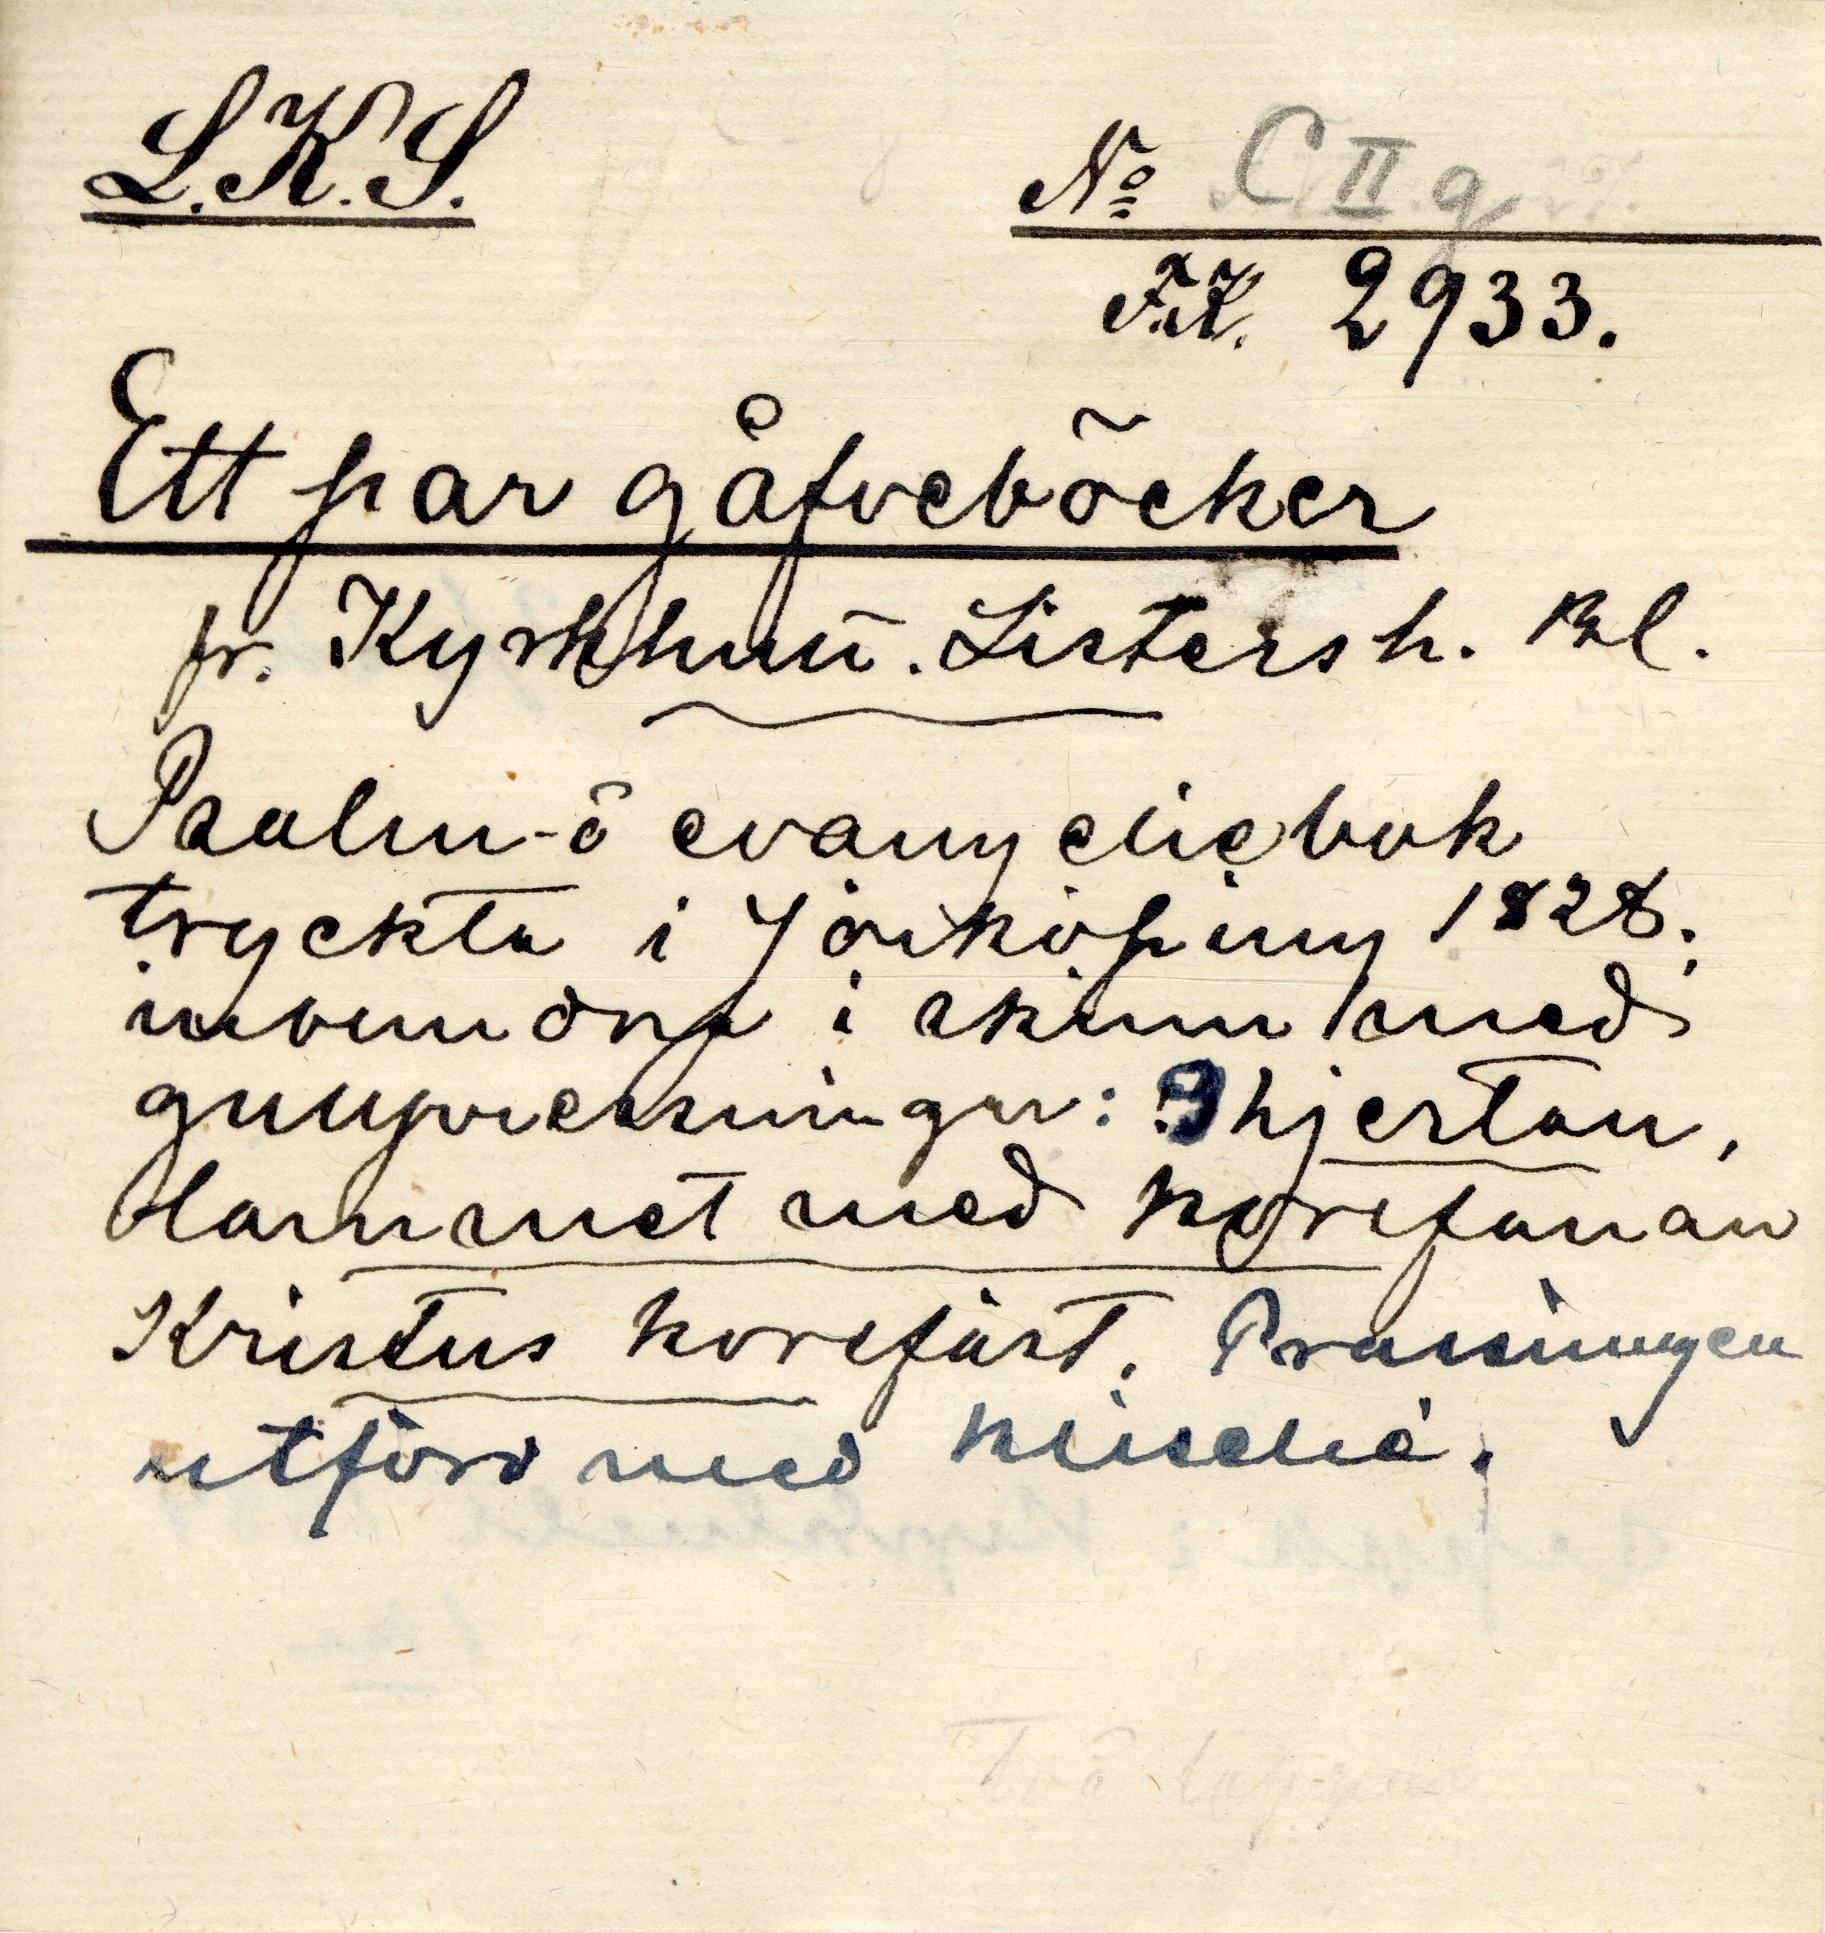 L.K.S.
No C II g
F.K. 2933.
Ett par gåfveböcker
fr. Kyrkhult. Listersh. Bl.
Psalm- o evangeliebok
tryckta i Jönköping 1828.
inbundna i skinn med
guldpressningar: 9 hjertan,
lammet med korsfanan
Kristus korsfäst. Pressningen
utförd med
Två lappar